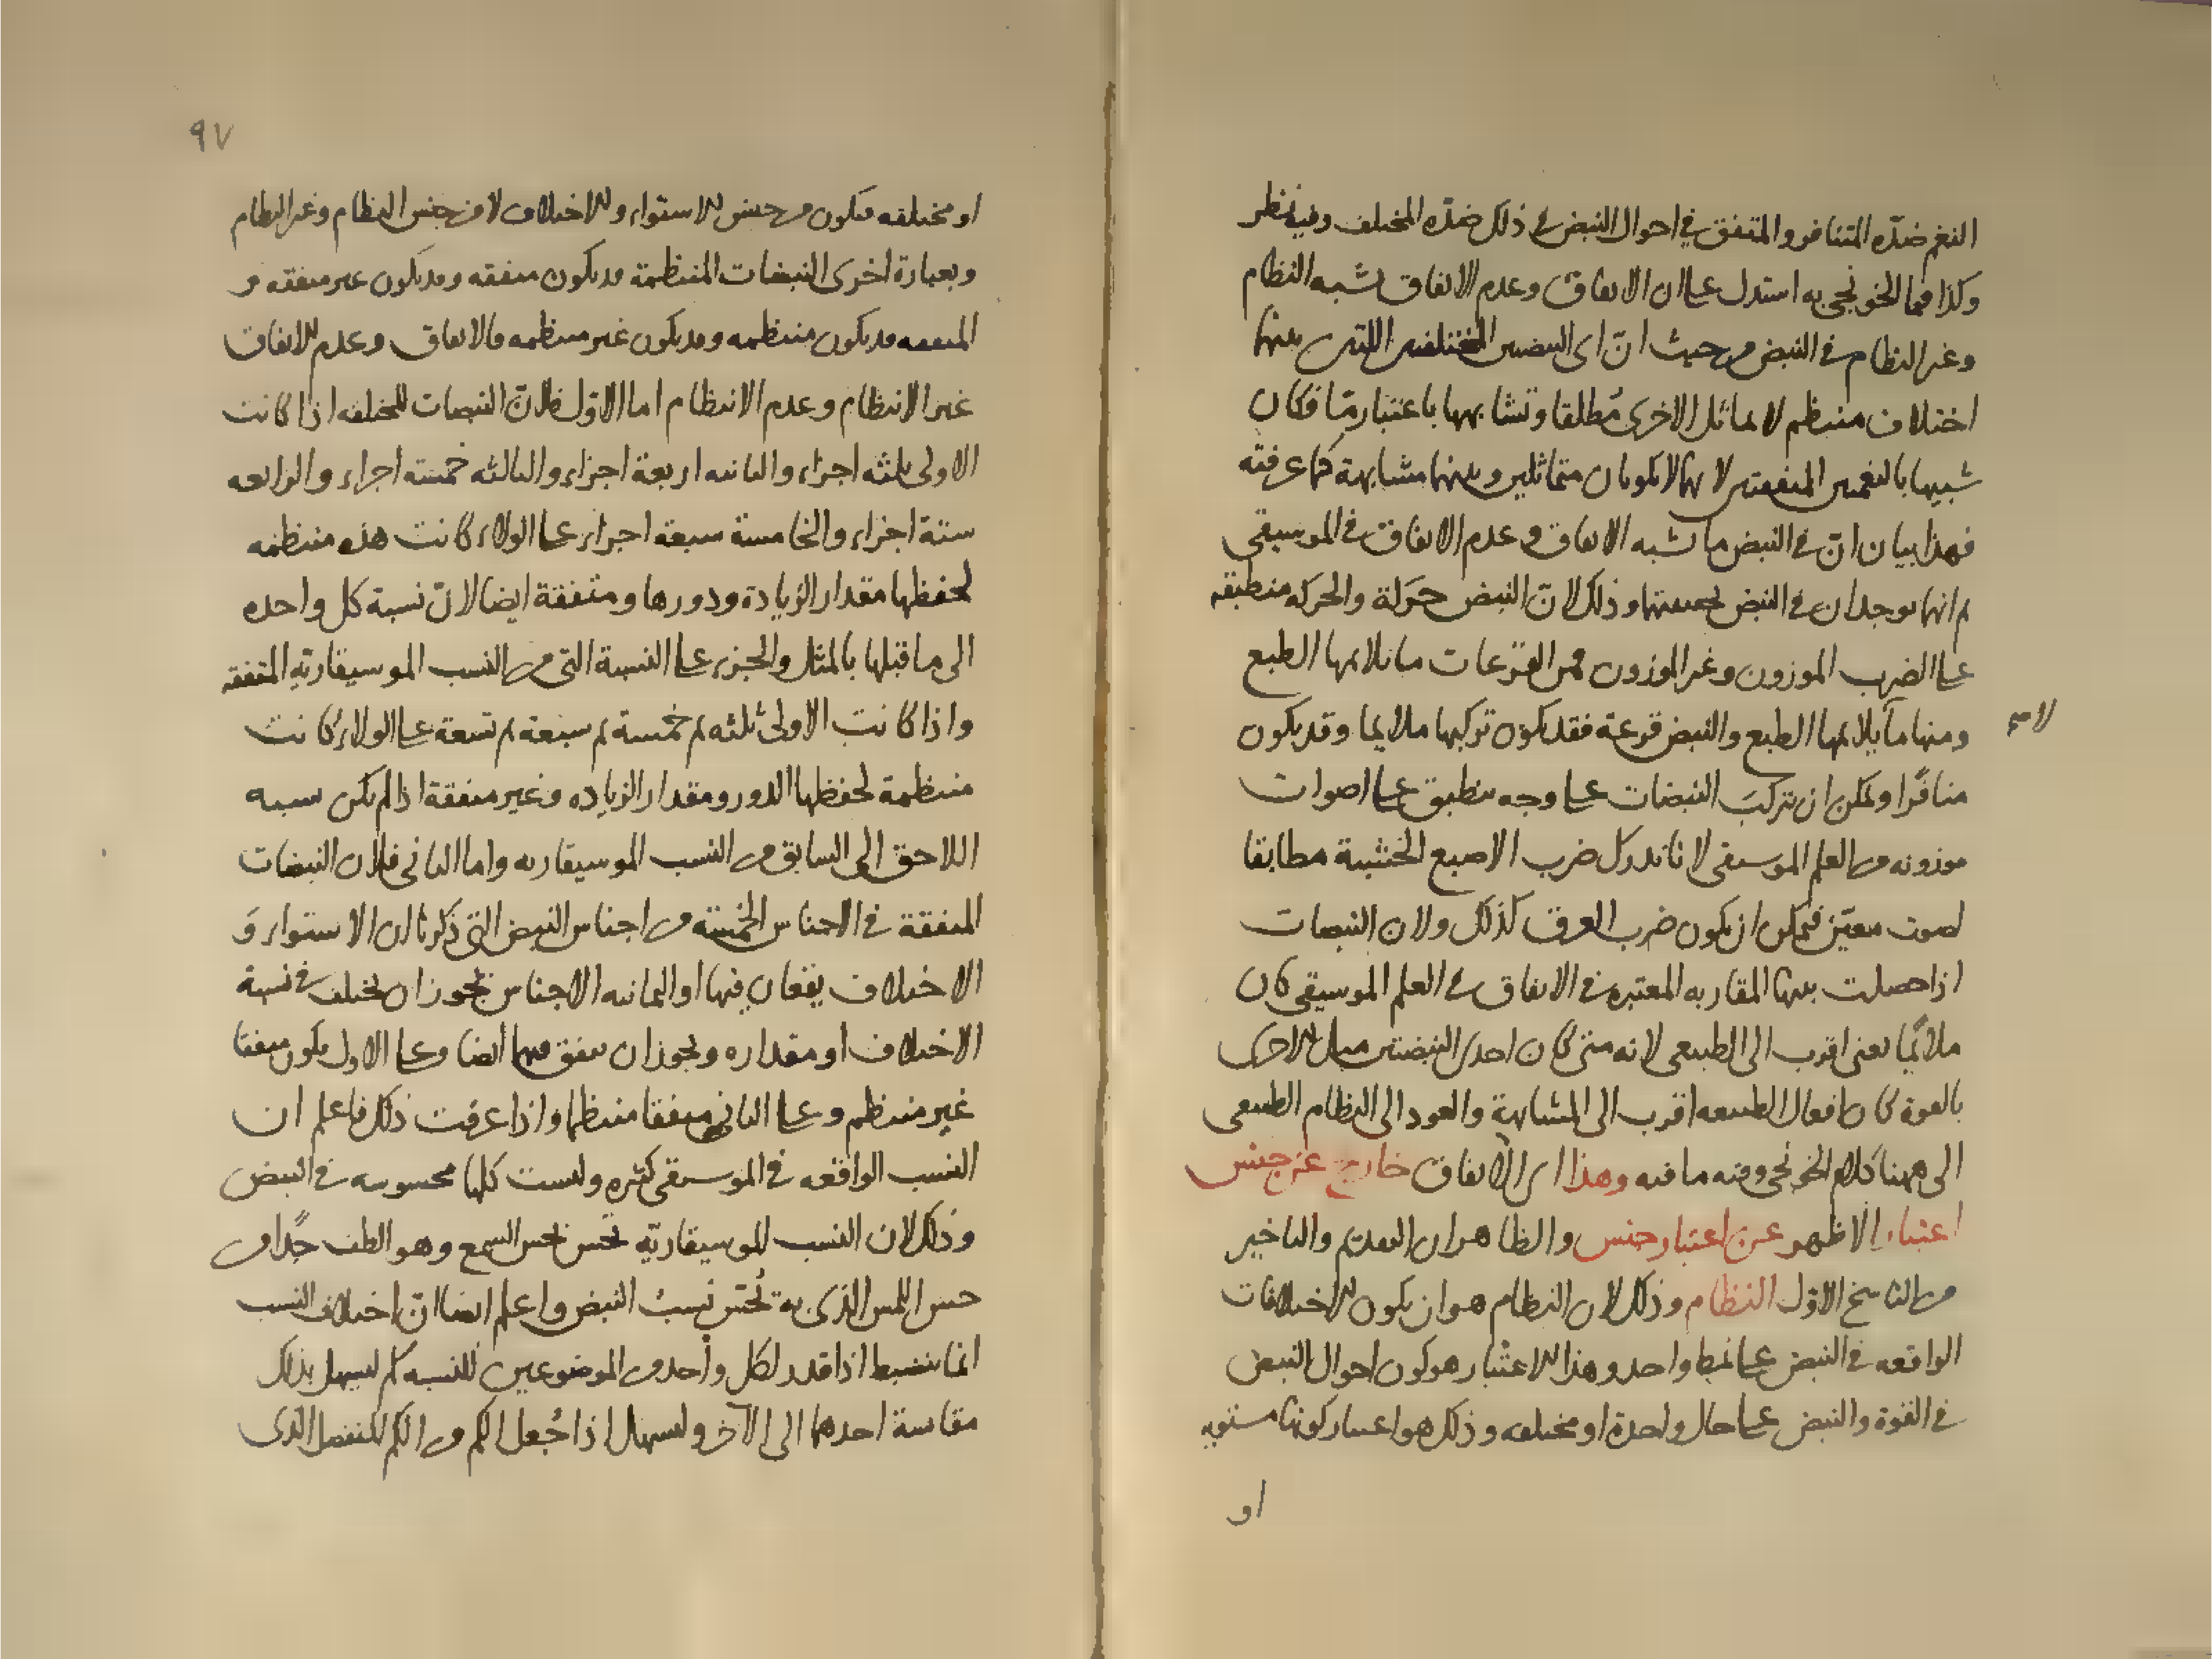 النغم ضدّه المتنافر والمتفق في احوال النبض في ذلك ضدّه المختلف وفيه نظر
وكذا فيما الخونجي به استدل على ان الاتفاق وعدم الاتفاق يشبه النظام
وغير النظام في النبض من حيث انّ اى النبضين المختلفين اللتين بينهما
اختلاف منتظم لا تماثل الاخرى مُطلقا وتشابهها باعتبار مّا فكان
شبيها بالنغمتين المتفقتين لانهما لا يكونان متماثلين وبينهما مشابهة كما عرفته
فهذا بيان انّ في النبض ما يشبه الاتفاق وعدم الاتفاق في الموسيقى
ثم انهما يوجدان في النبض بحقيقتهما وذلك لانّ النبض حركة والحركه منطبقه
على الضرب الموزون وغير الموزون فمن القرعات ما يلايمها الطبع
ومنها ما يلايمها الطبع والنبض قرعة فقد يكون تركبها ملايما وقد يكون
لا
منافرًا ويمكن ان تتركبَ النبضات على وجه ينطبق على اصوات
موزونه من العلم الموسيقى لانا ندرك ضرب الاصبع الخشبية مطابقا
لصوت معيّن فيمكن ان يكون ضرب العرق كذلك ولان النبضات
اذا حصلت بينها المقاربه المعتبره في الاتفاق في العلم الموسيقى كان
ملائمًا يعنى اقرب الى الطبيعى لانه متى كان احدى النبضتين الاخرى
بالقوة كان افعال الطبيعه اقرب الى المشابهة والعود الى النظام الطبيعى
الى ههنا كلام الخونجى وفيه ما فيه وهذا اى الاتفاق خارج عن جنس
اعتبار الاظهر عن اعتبار جنس والظاهر ان التقديم والتاخير
من الناسخ الاوّل النظام وذلك لان النظام هو ان يكون الاختلافات
الواقعه في النبض على نمط واحد وهذا الاعتبار هو كون احوال النبض
في القوة والنبض على حال واحدة او مختلفه وذلك هو اعتبار كونها مستويه
او
٩٧
او مختلفه فيكون من جنس الاستواء والاختلاف لا من جنس النظام وغير النظام
وبعبارة اخرى النبضات المنتظمة قد يكون متفقه وقد يكون غير متفقه و
المتفقه قد يكون منتظمه وقد يكون غير منتظمه فالاتفاق وعدم الاتفاق
غير الانتظام وعدم الانتظام اما الاوّل فلانّ النبضات المختلفه اذا كانت
الاولى ثلثه اجزاء والثانيه اربعة اجزاء والثالثه خمسة اجزاء والرابعه
ستة اجزاء والخامسة سبعة اجزاء على الولاء كانت هذه منتظمه
لحفظها مقدار الزيادة ودورها ومتفقة ايضا لانّ نسبة كل واحده
الى ما قبلها بالمثل والجزء على النسبة التى من النسب الموسيقاريّه المتفقه
واذا كانت الاولى ثلثه ثم خمسة ثم سبعة ثم تسعة على الولاء كانت
منتظمة لحفظها الدور ومقدار الزياده وغير متفقة اذا لم يكن نسبه
اللاحق الى السابق من النسب الموسيقاريه واما الثانى فلان النبضات
المتفقة في الاجناس الخمسة من اجناس النبض التى ذكرنا ان الاستواء وَ
الاختلاف يقعان فيها او الثمانيه الاجناس يجوز ان يختلف في نسبة
الاختلاف او مقداره ويجوز ان يتفق فيهما ايضا وعلى الاول يكون متفقا
غير منتظم وعلى الثانى متفقا منتظما واذا عرفت ذلك فاعلم ان
النسب الواقعه في الموسيقى كثيره وليست كلها محسوسه في النبض
وذلك لان النسب الموسيقاريّه تحس بحس السمع وهو الطف جدًا من
حس اللمس الذى به تُحَس نسبُ النبض واعلم ايضا انّ اختلاف النسب
انما ينضبط اذا قدر لكل واحد من الموضوعين للنسبه كم ليسهل بذلك
مقايسة احدهما الى الآخر وليسهل اذا جُعل الكم من الكم المنفصل الذى